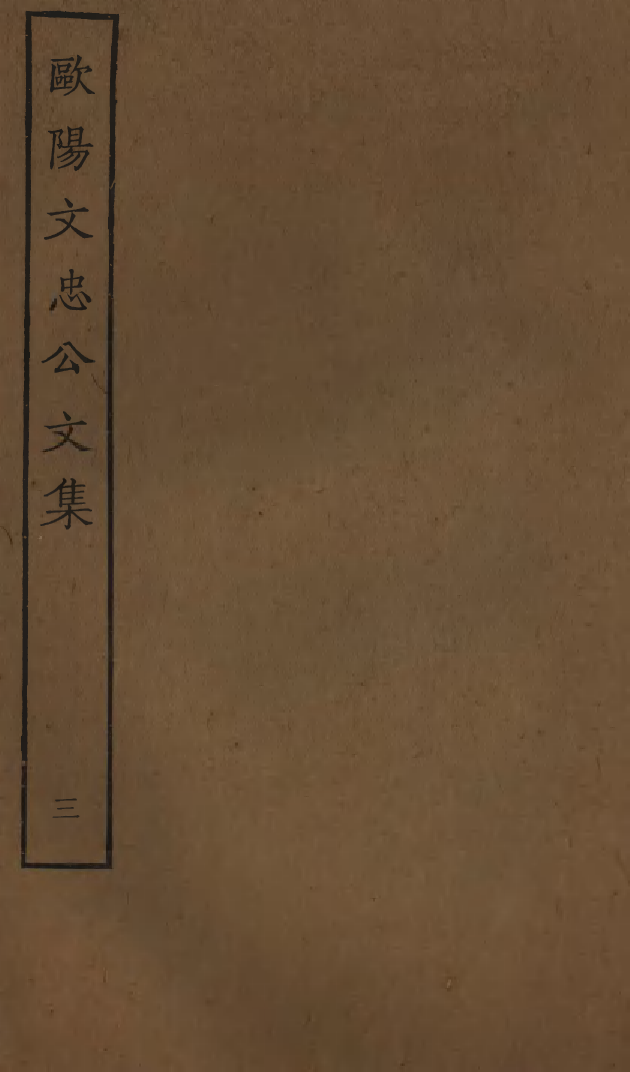 歐陽文忠公文集
三